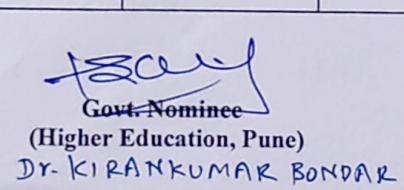 Govt. Nominee
(Higher Education, Pune)
Dr. KIRANKUMAR BONDAR